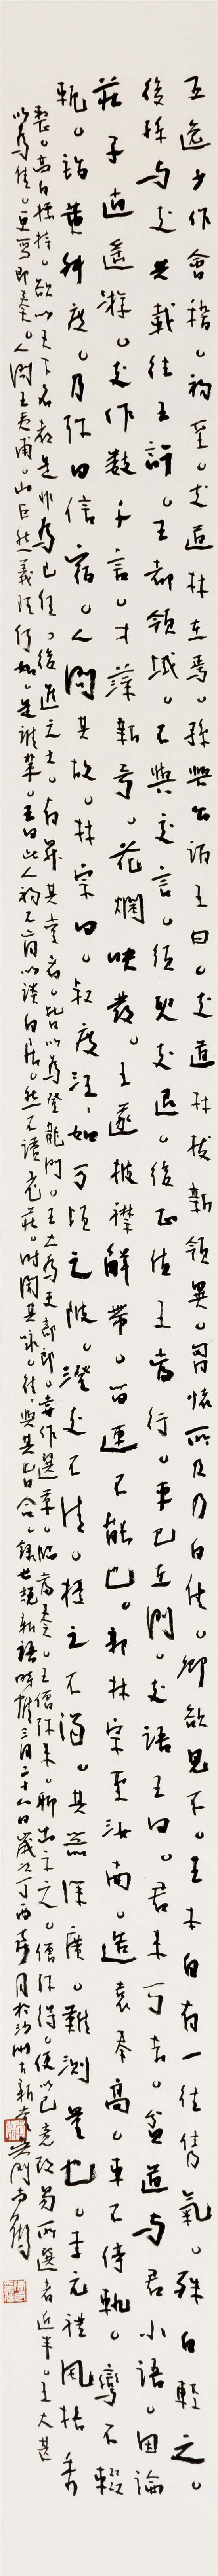 王逸少作會稽。初至。支道林在焉。孫興公謂王曰。支道林拔新領異。胸懷所及乃自佳。卿欲見不。王本自有一往儁氣。殊自輕之。
後孫与支共載往王許。王都領域。不與交言。須臾支退。後正值王當行。車已在門。支語王曰。君未可去。貧道与君小語。因論
莊子逍遙游。支作數千言。才藻新奇。花爛映發。王遂披襟解帶。留連不能已。郭林宗至汝南。造袁奉高。車不停軌。鸞不輟
軛。詣黃叔度。乃弥日信宿。人問其故。林宗曰。叔度汪汪如万頃之陂。澄之不清。擾之不濁。其器深廣。難測量也。李元禮風格秀
整。高自標持。欲以天下名教是非為己任。後進之士。有升其堂者。皆以為登龍門。王大為吏部郎。嘗作選草。臨當奏。王僧弥来。聊出示之。僧弥得。便以己意改易所選者近半。王大甚
以為佳。更寫即奏。人問王夷甫。山巨源義理何如。是誰輩。王曰此人初不肯以談自居。然不讀老莊。时聞其詠。往往與其旨合。錄世說新語時維三月二十八日歲次丁酉 月於沙洲 吳門